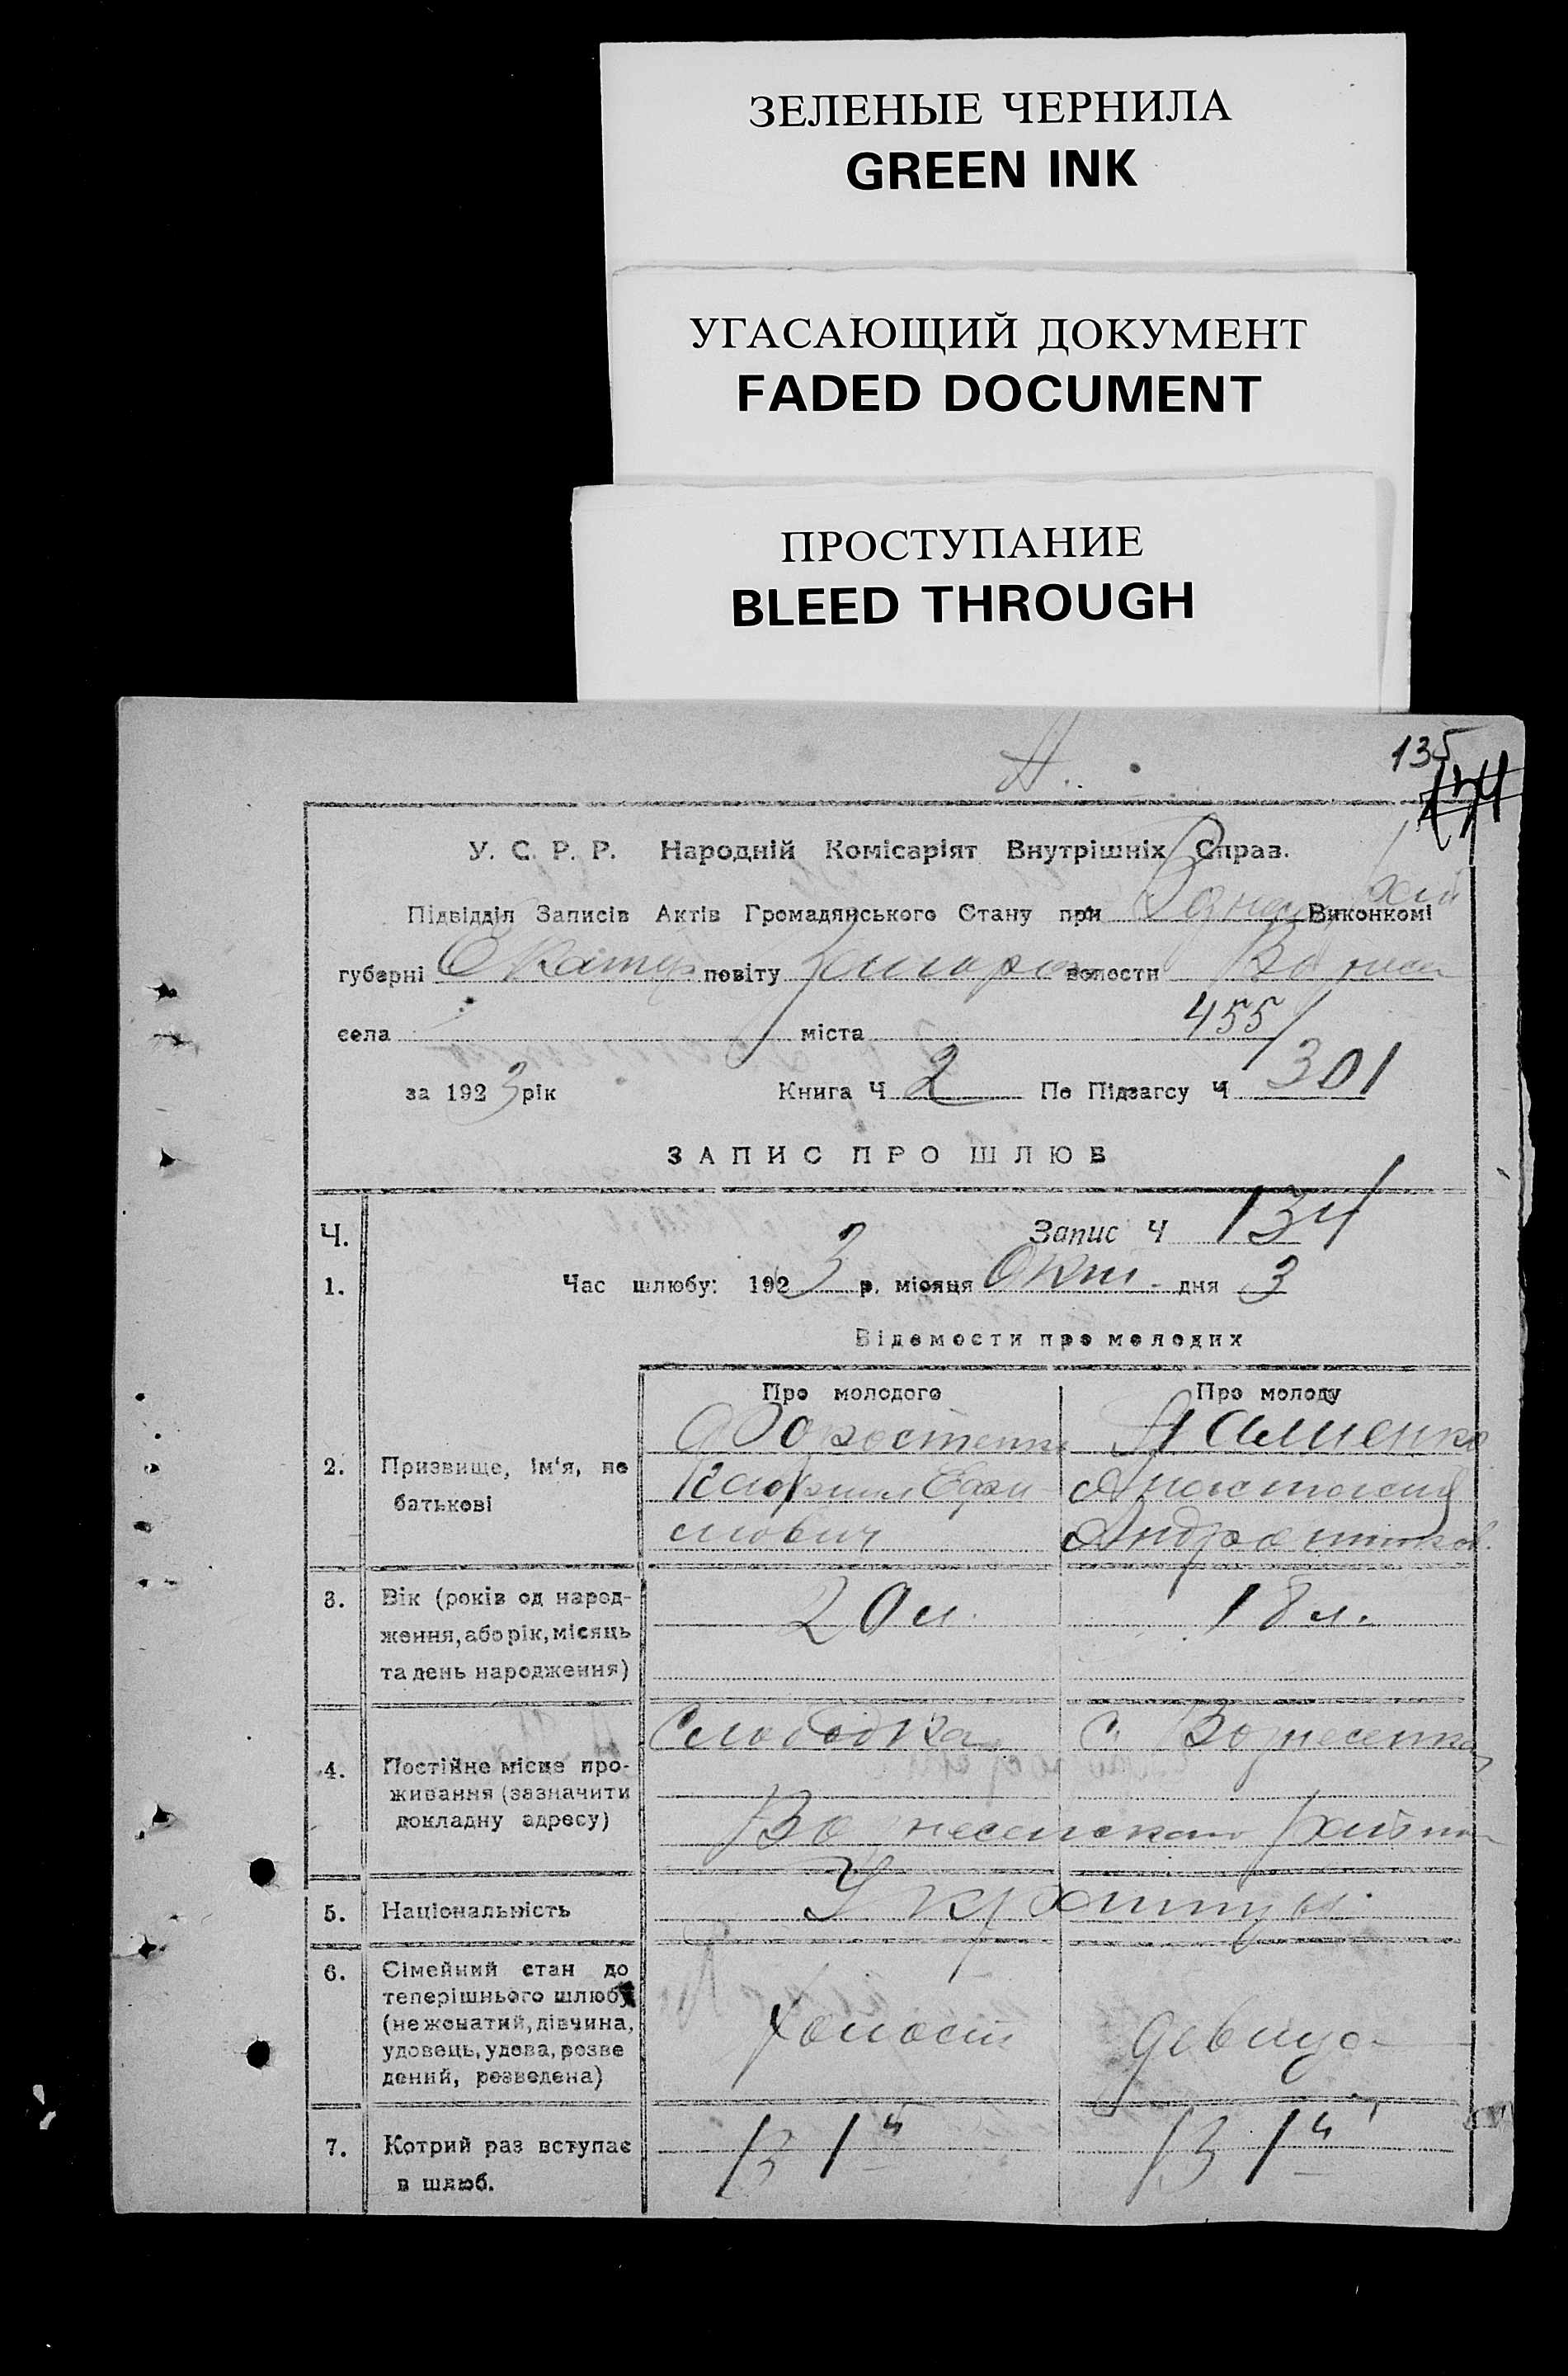 ЗЕЛЕНЫЕ ЧЕРНИЛА
GREEN INK
УГАСАЮЩИЙ ДОКУМЕНТ
FADED DOCUMENT
ПРОСТУПАНИЕ
BLEED THROUGH
135
У. С. Р. Р. Народній Комісаріят Внутрішніх Справ.
Підвідділ Записів Актів Громадянського Стану при Виконкомі
губерні повіту волости
села міста 455
за 1923 рік Книга Ч 2 По Підзагсу Ч 301
ЗАПИС ПРО ШЛЮБ
Ч. Запис Ч 134
1. Час шлюбу: 1923 р. місяця Окт. дня 3
Відомости про молодих
Про молодого Про молоду
2. Призвище, ім'я, по батькові
Анастасия
мович
3. Вік (років од народ-
ження, або рік, місяць
та день народження)
20 л. 18 л.
4. Постійне місце про-
живання (зазначити
докладну адресу)
Слободка с. Вознесенка
Вознесенского района
5. Національність Украинцы
6. Сімейний стан до
теперішнього шлюбу
(нежонатий, дівчина,
удовець, удова, розве
дений, розведена)
Холост девица
7. Котрий раз вступає
в шлюб.
В 1й В 1й